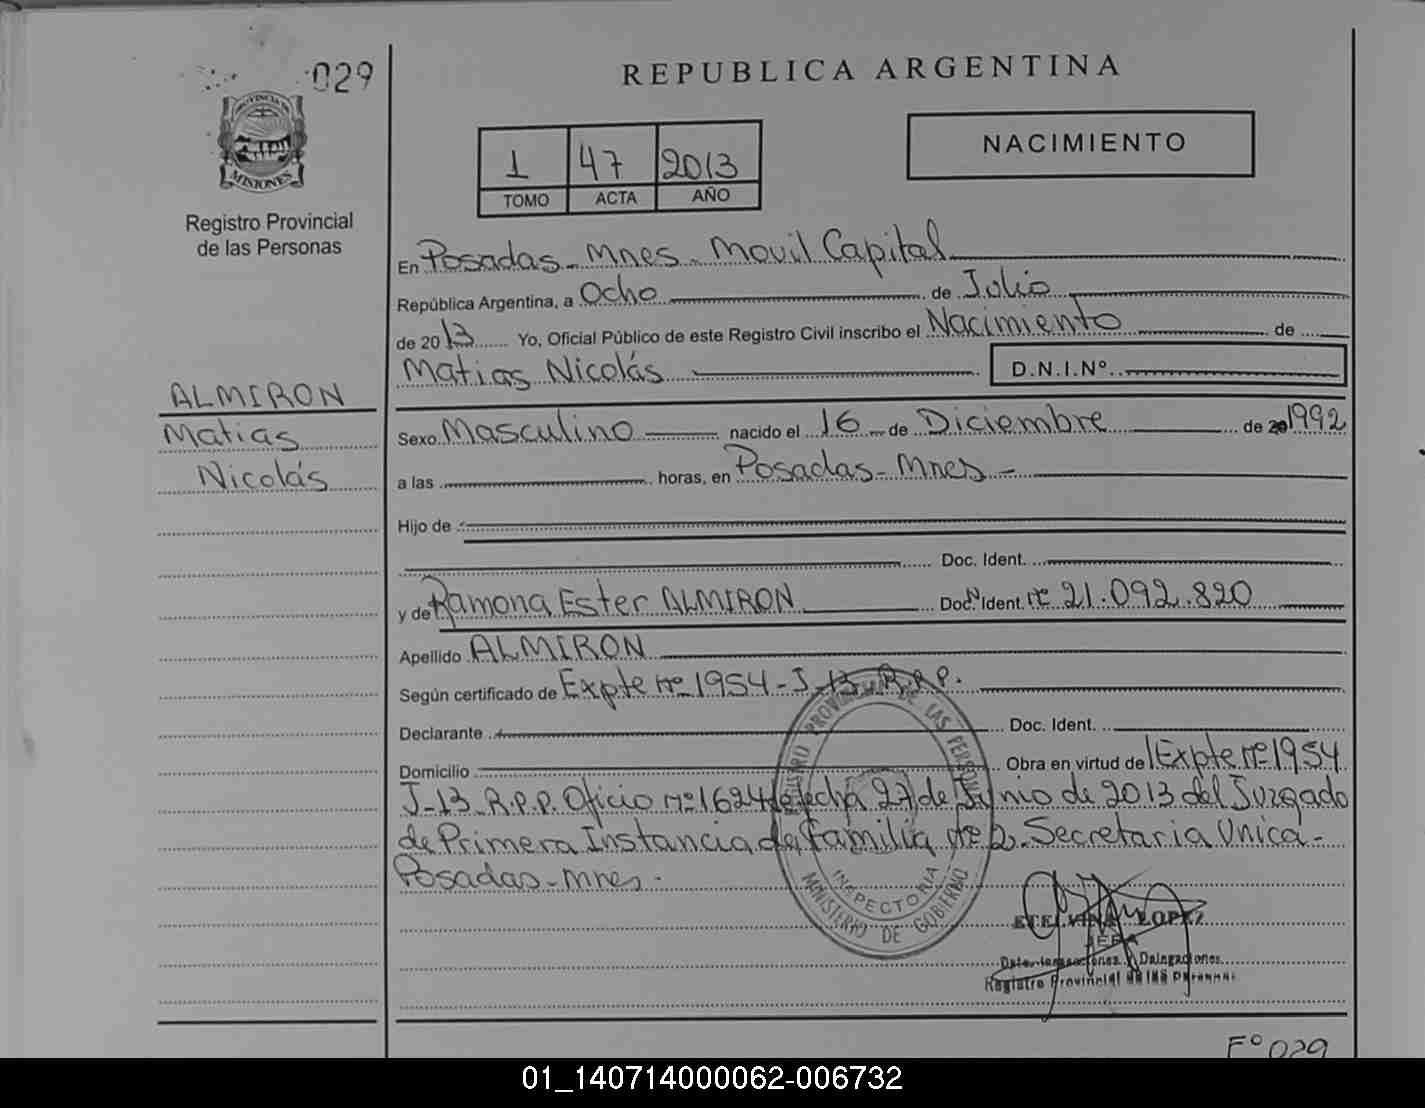 029
PROVINCIA DE
MISIONES
Registro Provincial
de las Personas
REPUBLICA ARGENTINA
1 47 2013
TOMO ACTA AÑO
NACIMIENTO
En Posadas - Mnes - Movil Capital
República Argentina, a Ocho de Julio
de 2013 Yo, Oficial Público de este Registro Civil inscribo el Nacimiento de
Matias Nicolás D.N.I.Nº
ALMIRON
Matias
Nicolás
Sexo Masculino nacido el 16 de Diciembre de 20 1992
a las horas, en Posadas - Mnes -
Hijo de
Doc. Ident.
y de Ramona Ester ALMIRON Doc. Ident. Nº 21.092.820
Apellido ALMIRON
Según certificado de Expte nº 1954 - J - 13 R.P.P.
Declarante Doc. Ident.
Domicilio Obra en virtud de Expte nº 1954
J-13 R.P.P. Oficio nº 1624 de fecha 27 de Junio de 2013 del Juzgado
de Primera Instancia de Familia nº 2 - Secretaria Unica -
Posadas - Mnes -
REGISTRO PROVINCIAL DE LAS PERSONAS
INSPECTORIA
MINISTERIO DE GOBIERNO
ETELVINA LOPEZ
JEFA
Dpto. Inspecciones y Delegaciones
Registro Provincial de las Personas
Fº 029
01_140714000062-006732